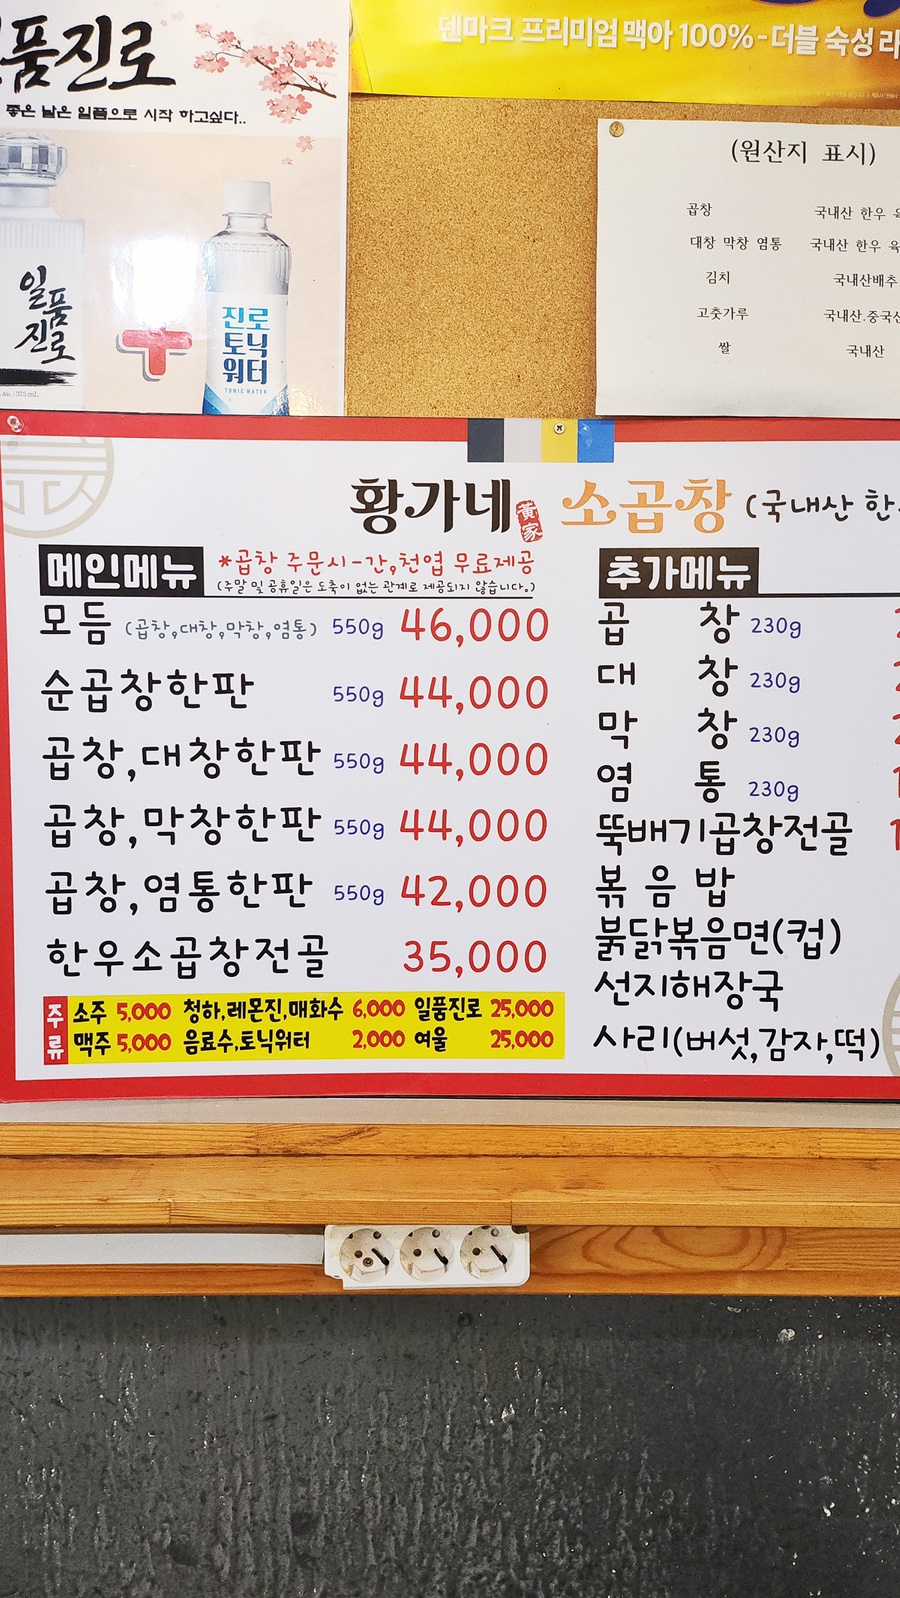 품진로
좋은 날은 일품으로 시작 하고싶다..
일품
진로
375 mL
진로
토닉
워터
TONIC WATER
덴마크 프리미엄 맥아 100% - 더블 숙성 라
(원산지 표시)
곱창 국내산 한우
대창 막창 염통 국내산 한우
김치 국내산배추
고춧가루 국내산.중국산
쌀 국내산
황가네 黃家 소곱창 (국내산 한
메인메뉴 *곱창 주문시-간,천엽 무료제공
(주말 및 공휴일은 도축이 없는 관계로 제공되지 않습니다.)
모듬 (곱창,대창,막창,염통) 550g 46,000
순곱창한판 550g 44,000
곱창,대창한판 550g 44,000
곱창,막창한판 550g 44,000
곱창,염통한판 550g 42,000
한우소곱창전골 35,000
주류
소주 5,000 청하,레몬진,매화수 6,000 일품진로 25,000
맥주 5,000 음료수,토닉워터 2,000 여울 25,000
추가메뉴
곱 창 230g
대 창 230g
막 창 230g
염 통 230g
뚝배기곱창전골
볶 음 밥
붉닭볶음면(컵)
선지해장국
사리(버섯,감자,떡)